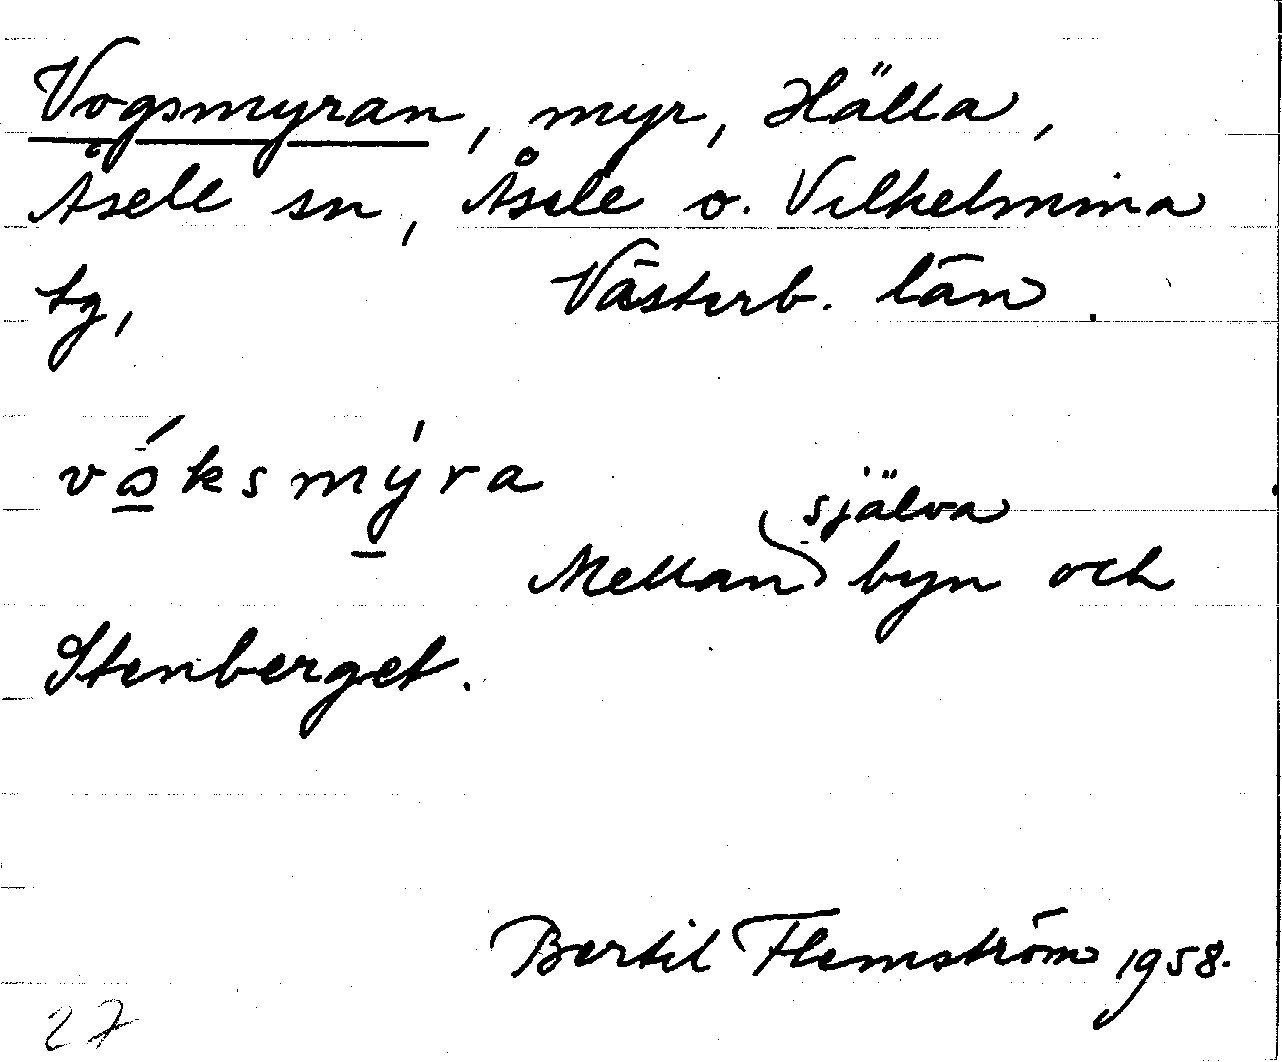 Vogsmyran, myr, Hälla,
Åsele sn, Åsele o. Vilhelmina
tg, Västerb. län.
vɷ̲́ksmý̲ra
Mellan själva byn och
Stenberget.
Bertil Flemström 1958.
27